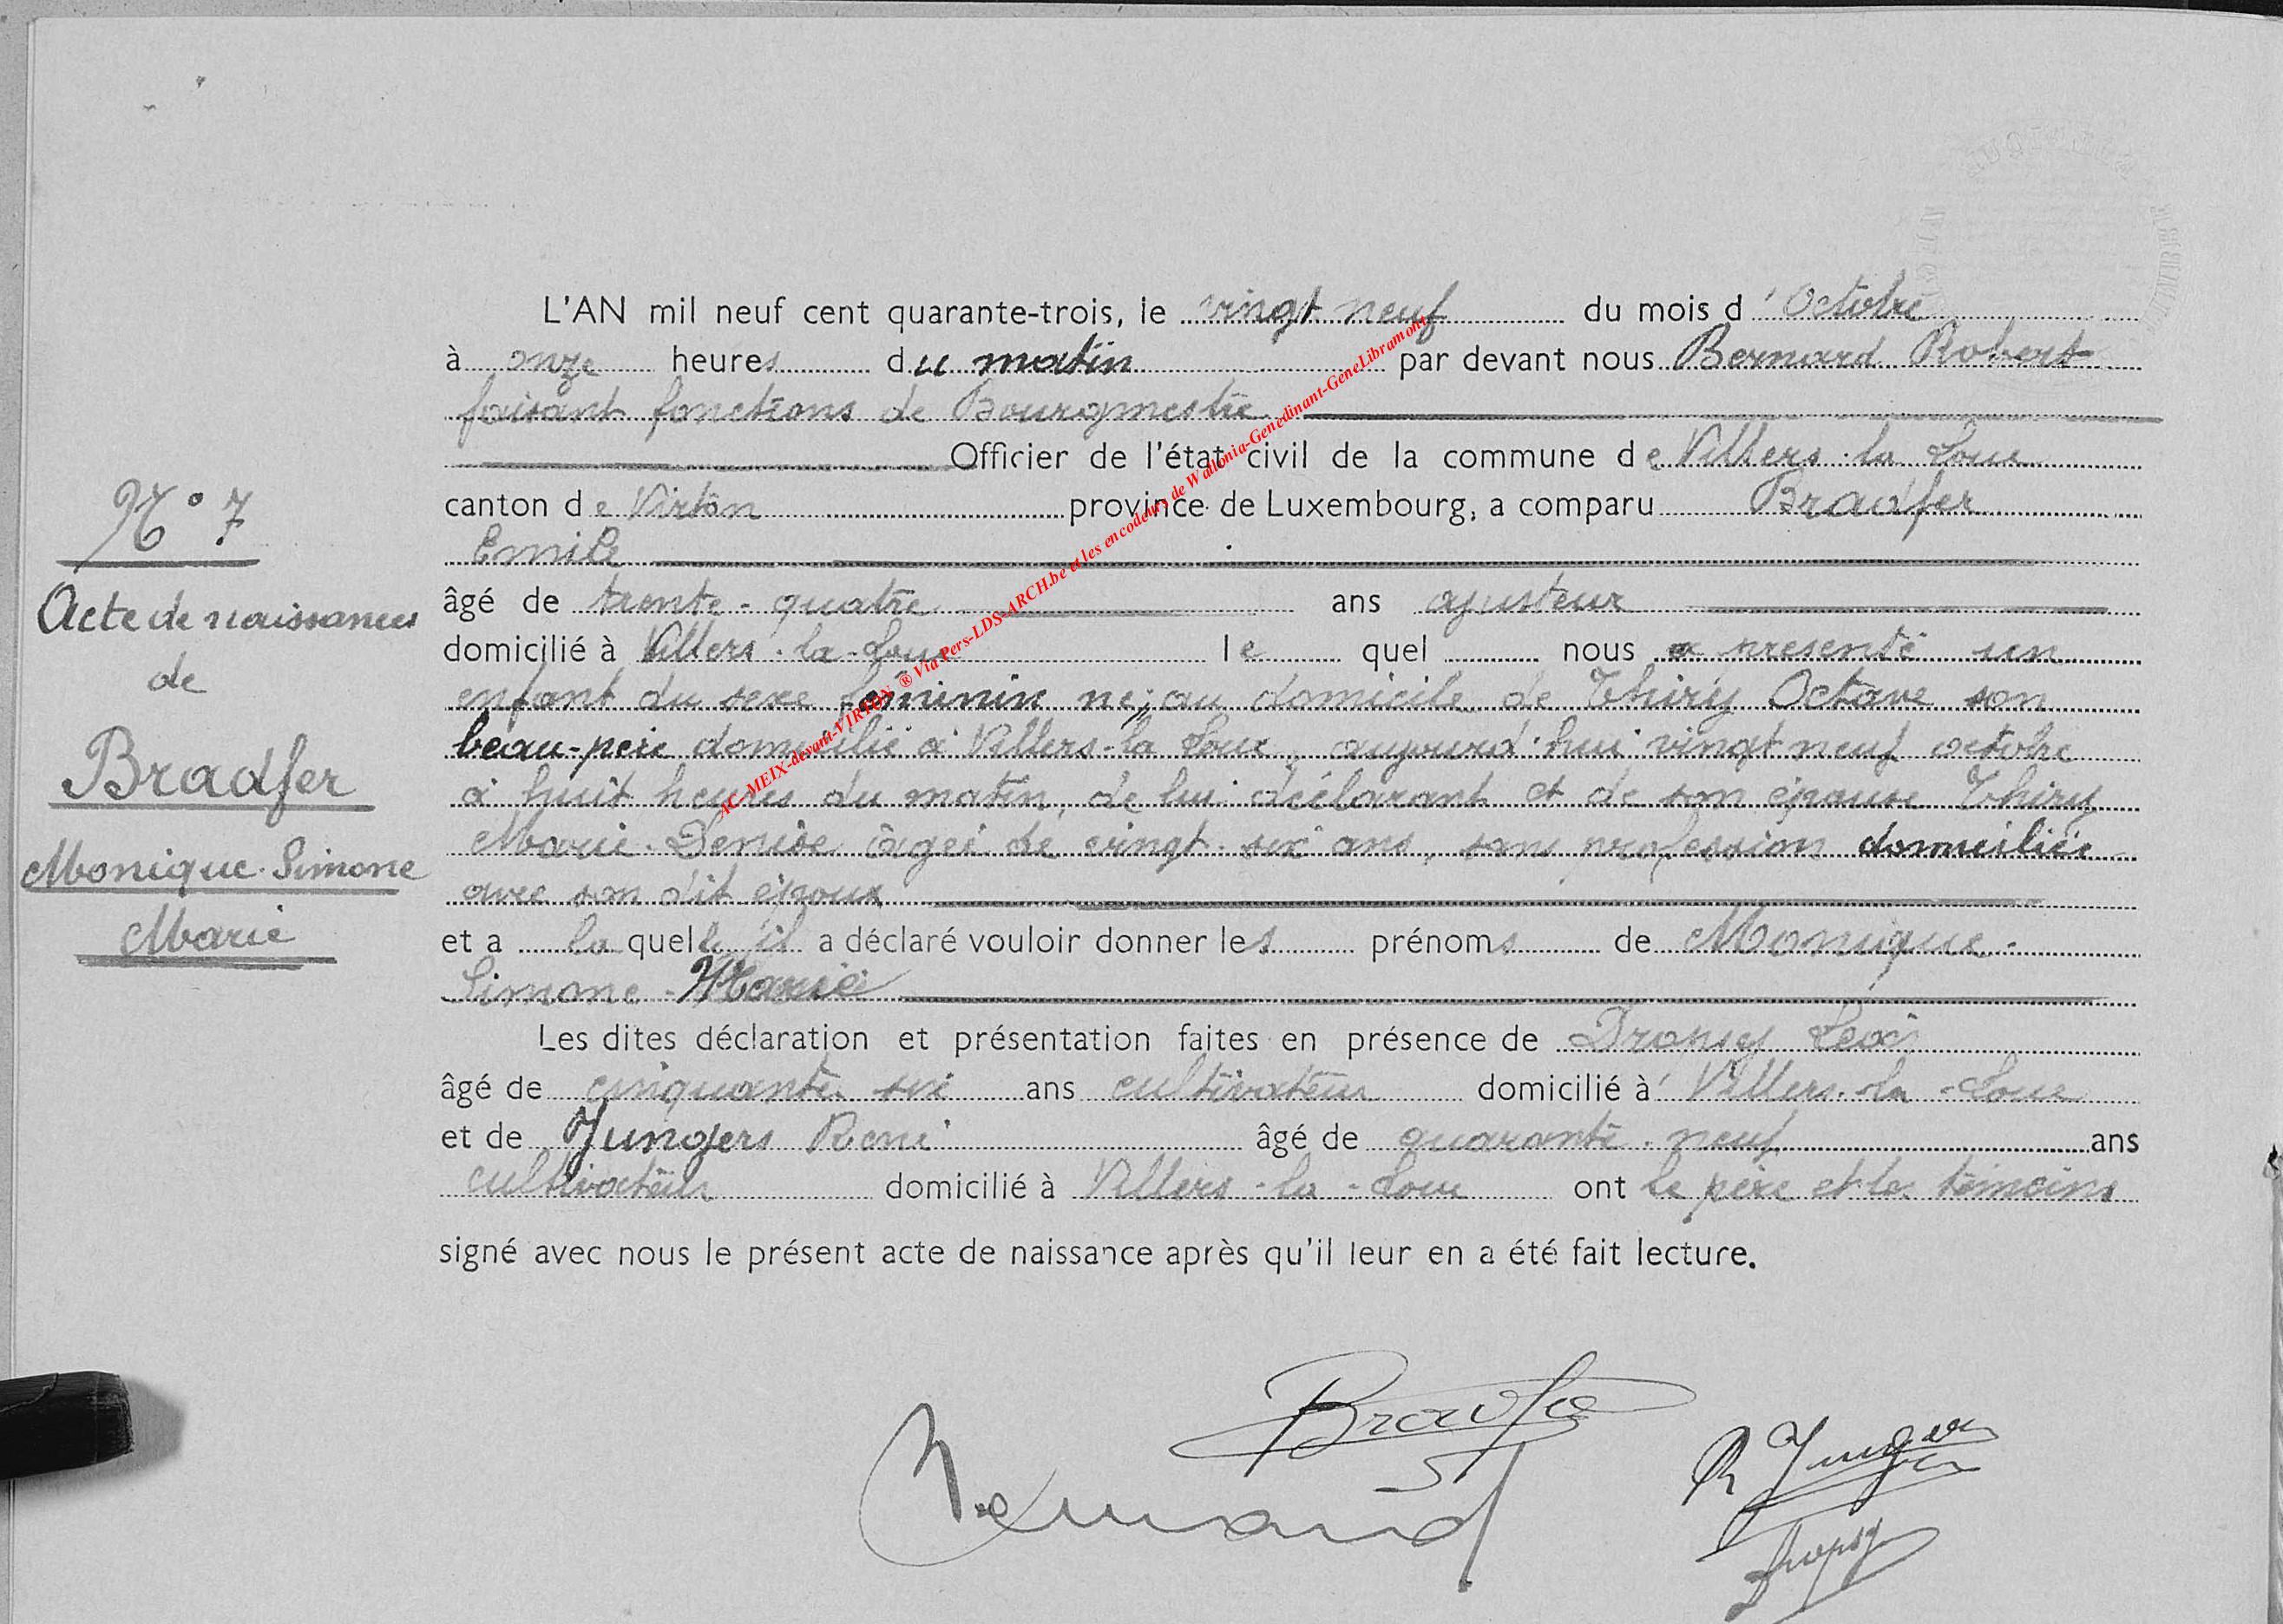 L'AN mil neuf cent quarante-trois, le vingt neuf du mois d'Octobre
à onze heures du matin par devant nous Bernard Robert
faisant fonctions de Bourgmestre
Officier de l'état civil de la commune de Villers-la-Loue
canton de Virton province de Luxembourg, a comparu Bradfer
Emile
âgé de trente-quatre ans ajusteur
domicilié à Villers-la-Loue lequel nous a présenté un
enfant du sexe féminin né, au domicile de Thiry Octave son
beau-père domicilié à Villers-la Loue, aujourd'hui vingt neuf octobre
à huit heures du matin, de lui déclarant et de son épouse Thiry
Marie-Denise âgée de vingt-six ans, sans profession domiciliée
avec son dit époux
et a laquelle il a déclaré vouloir donner les prénoms de Monique-
Simone-Marie
Les dites déclaration et présentation faites en présence de Dropsy
âgé de cinquante-six ans cultivateur domicilié à Villers-la-Loue
et de Jungers René âgé de quarante-neuf ans
cultivateur domicilié à Villers-la-Loue ont le père et les témoins
signé avec nous le présent acte de naissance après qu'il leur en a été fait lecture.
N° 7
Acte de naissances
de
Bradfer
Monique-Simone
Marie
AC-MEIX-devant-VIRTON ® Via Pers-LDS-ARCH.be et les encodeurs de Wallonia-Genedinant-GeneLibramont
Bradfer
Bernard
R Jungers
Dropsy